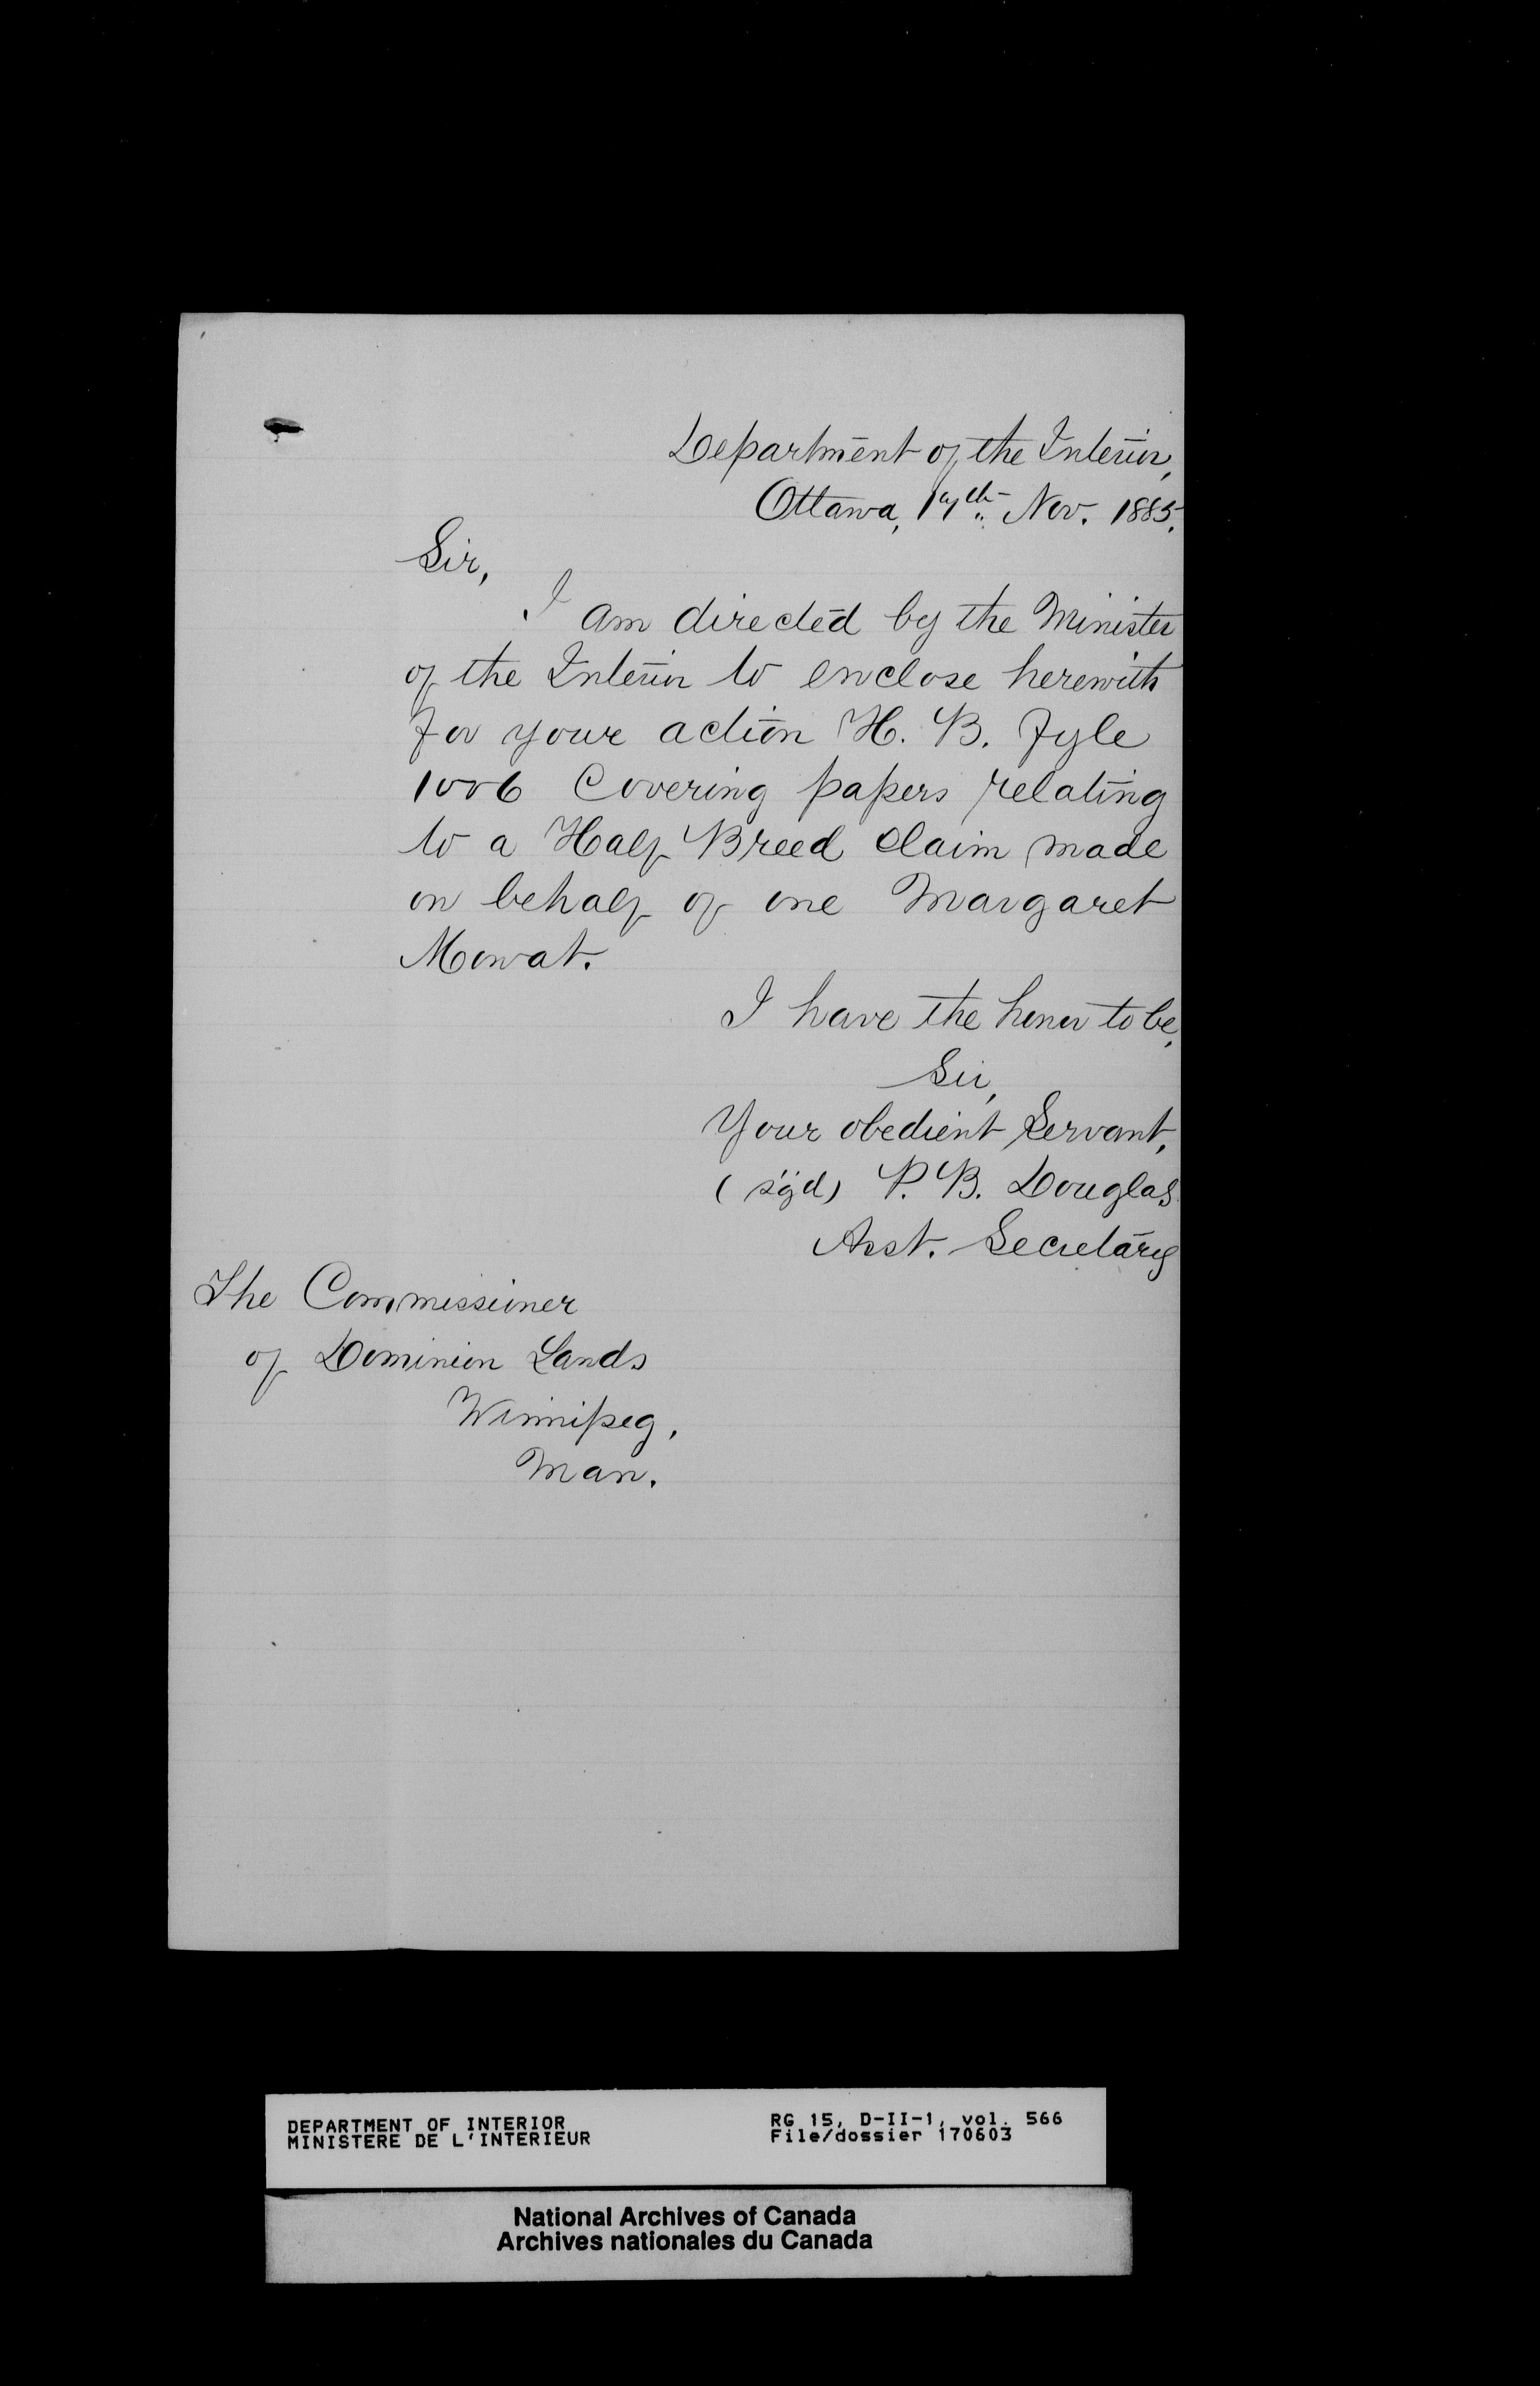 Department of the Interior,
Ottawa, 17th Nov. 1885.
Sir,
I am directed by the Minister
of the Interior to enclose herewith
for your action H. B. Fyle
1006 Covering papers relating
to a Half Breed Claim made
on behalf of one Margaret
Mowat.
I have the honor to be,
Sir,
Your obedient Servant,
(sgd) P. B. Douglas
Asst. Secretary
The Commissioner
of Dominion Lands
Winnipeg,
Man.
DEPARTMENT OF INTERIOR RG 15, D-II-1, vol. 566
MINISTERE DE L'INTERIEUR File/dossier 170603
National Archives of Canada
Archives nationales du Canada